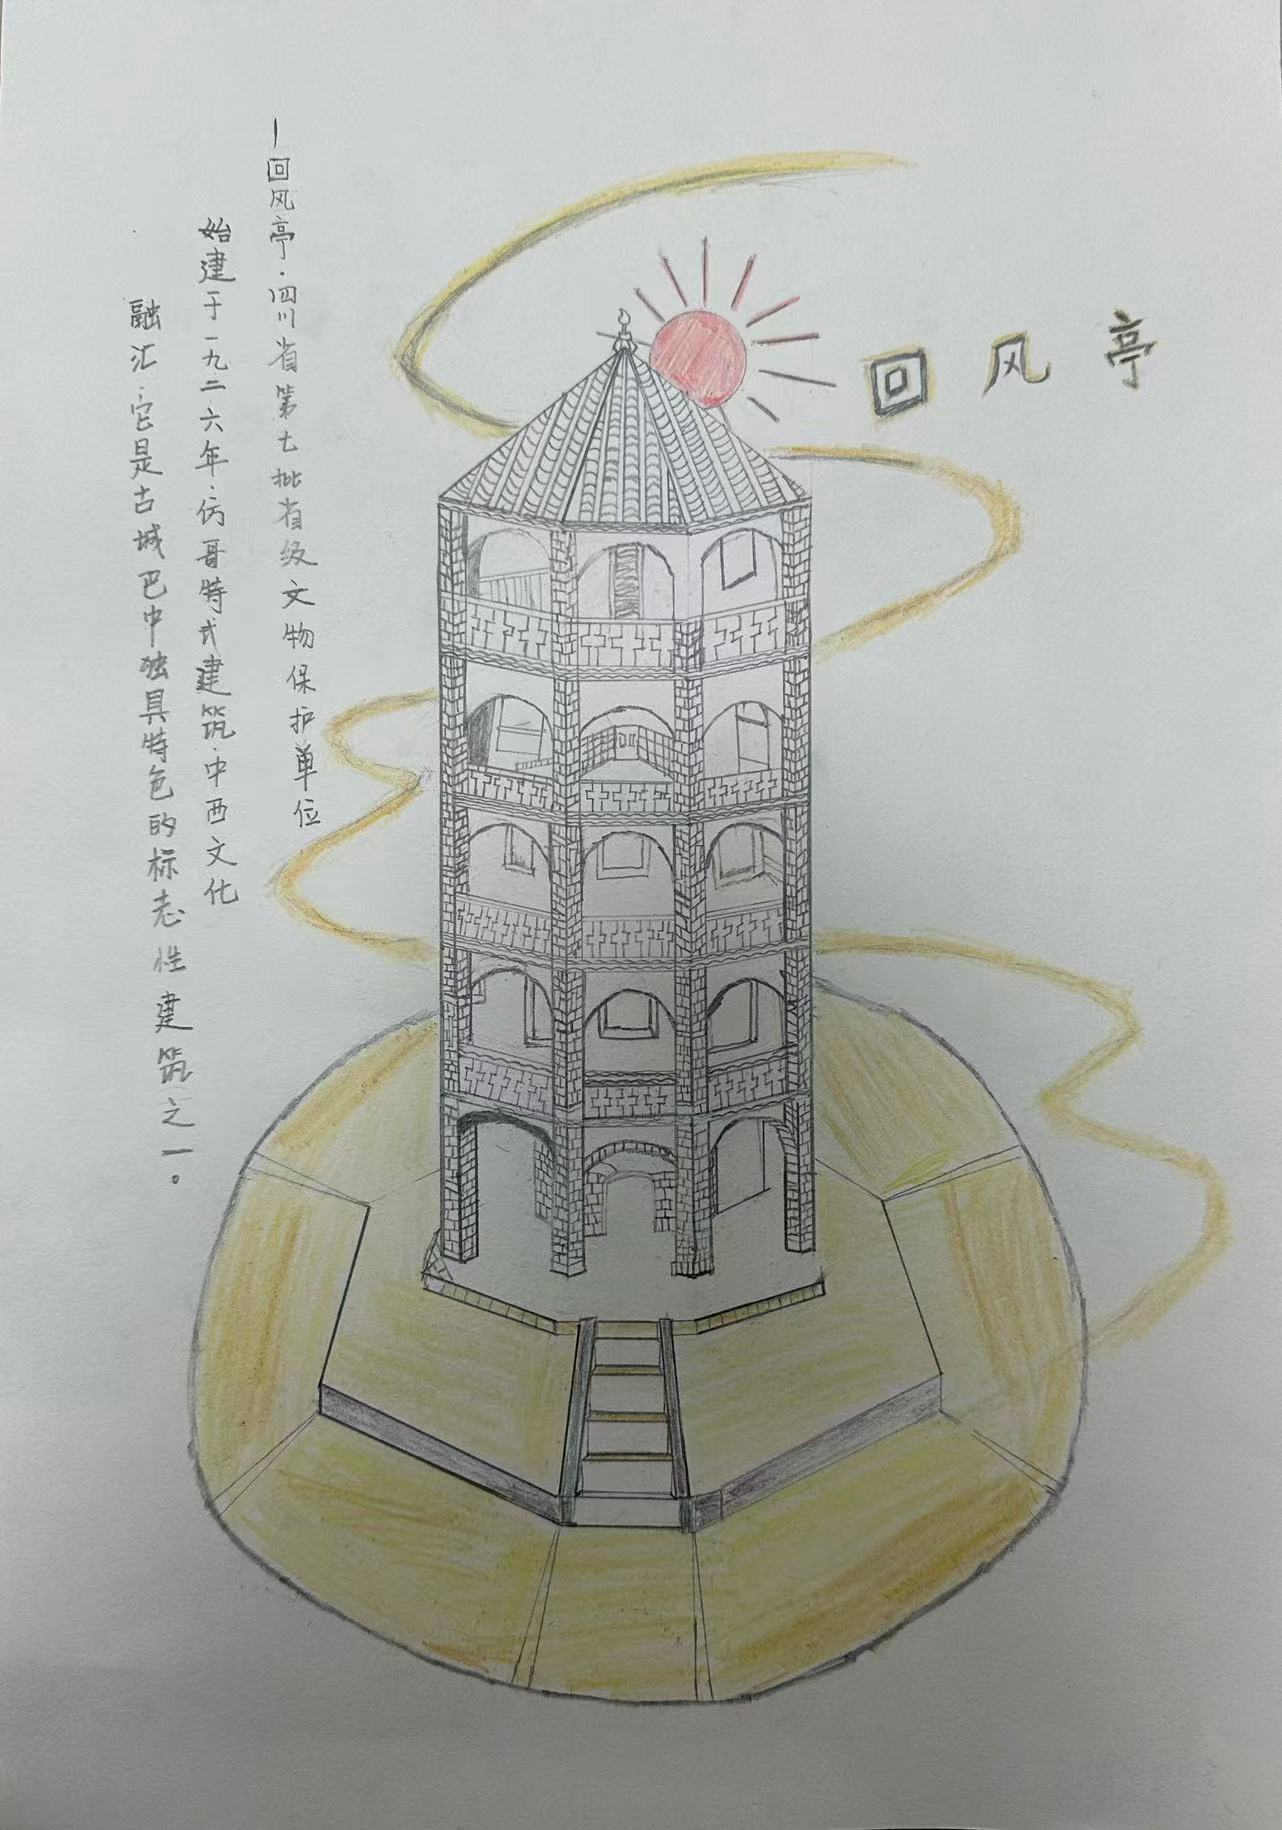 回风亭
一回风亭.四川省第七批省级文物保护单位
始建于一九二六年.仿哥特式建筑.中西文化
融汇.它是古城巴中独具特色的标志性建筑之一。